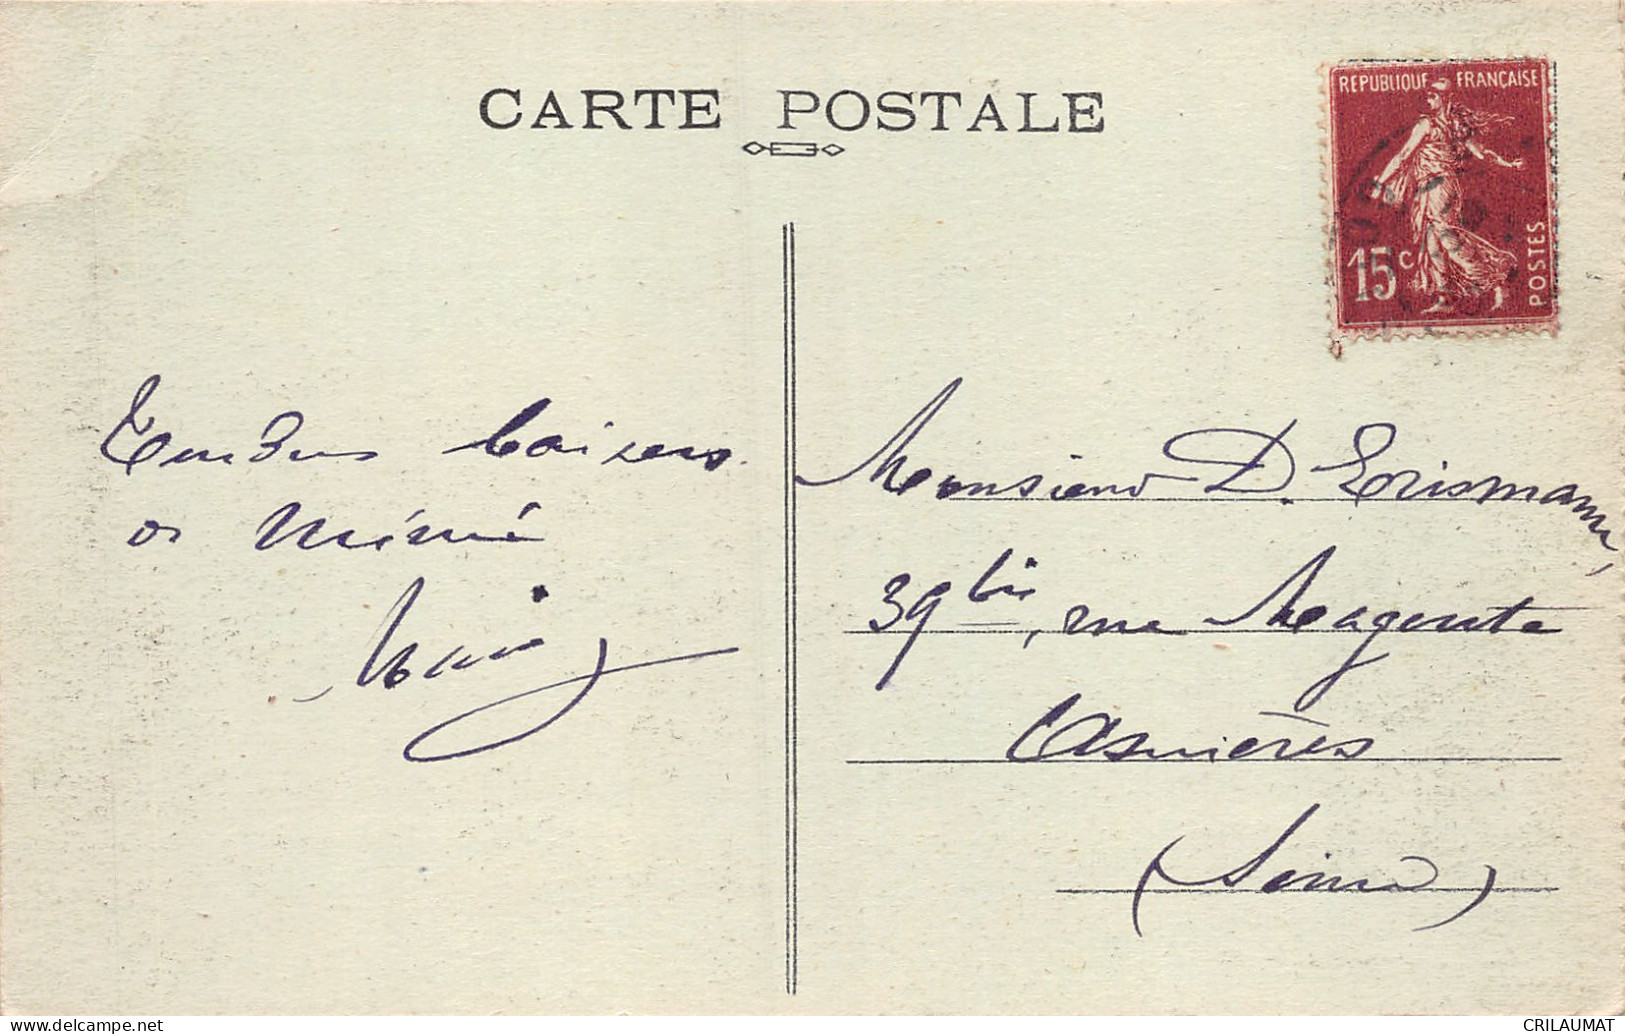 CARTE POSTALE
REPUBLIQUE FRANÇAISE
15c
POSTES
Tendres baisers
à Mémé
Monsieur D. Erismann,
39 bis, rue Magenta
Asnières
(Seine)
www.delcampe.net
CRILAUMAT